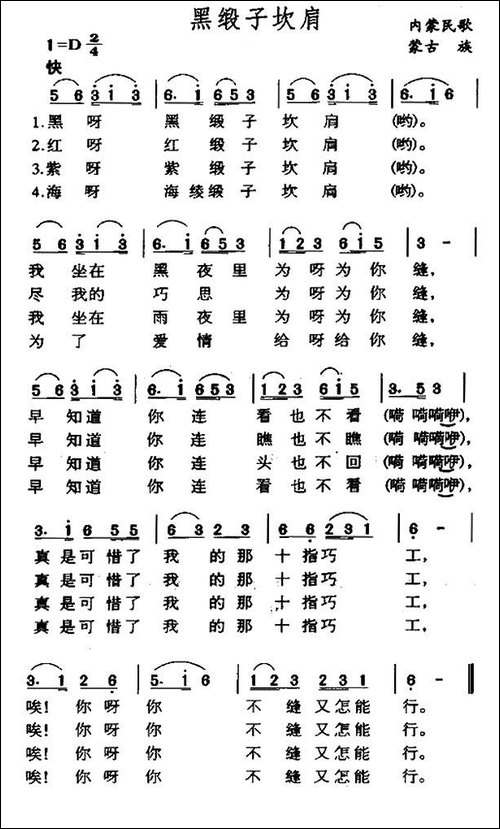 黑缎子坎肩
1=D 2/4
内蒙民歌
蒙古 族
快
5 6 3 i 3 | 6. i 6 5 3 | 5 6 3 i 3 | 6. i 6
1.黑 呀 黑 缎 子 坎 肩 (哟)。
2.红 呀 红 缎 子 坎 肩 (哟)。
3.紫 呀 紫 缎 子 坎 肩 (哟)。
4.海 呀 海 绫缎 子 坎 肩 (哟)。
5 6 3 i 3 | 6. i 6 5 3 | 1 2 3 6 i 5 | 3 -
我 坐在 黑 夜 里 为 呀 为 你 缝,
尽 我的 巧 思 为 呀 为 你 缝,
我 坐在 雨 夜 里 为 呀 为 你 缝,
为 了 爱 情 给 呀 给 你 缝,
5 6 3 i 3 | 6. i 6 5 3 | 1 2 3 6 i 5 | 3. 5 3
早 知道 你 连 看 也 不 看 (嗬 嗬嗬咿),
早 知道 你 连 瞧 也 不 瞧 (嗬 嗬嗬咿),
早 知道 你 连 头 也 不 回 (嗬 嗬嗬咿),
早 知道 你 连 看 也 不 看 (嗬 嗬嗬咿),
3. i 6 5 5 | 6 3 2 3 | 6 6 2 3 1 | 6 -
真 是 可 惜 了 我 的 那 十 指 巧 工,
真 是 可 惜 了 我 的 那 十 指 巧 工,
真 是 可 惜 了 我 的 那 十 指 巧 工,
真 是 可 惜 了 我 的 那 十 指 巧 工,
3. 1 2 6 | 5. i 6 | 1 2 3 2 3 1 | 6 -
唉! 你 呀 你 不 缝 又 怎能 行。
唉! 你 呀 你 不 缝 又 怎能 行。
唉! 你 呀 你 不 缝 又 怎能 行。
唉! 你 呀 你 不 缝 又 怎能 行。